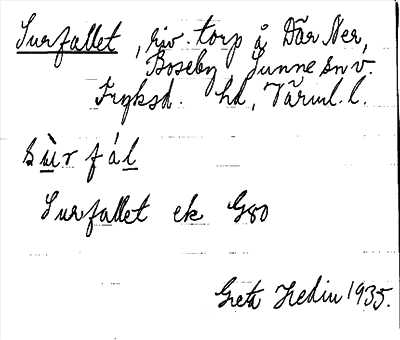 Surfallet, riv. torp å Där Ner,
Boseby Sunne sn v.
Fryksd. hd, Värml. l.
sùrfál
Surfallet ek G80
Greta Hedin 1935.